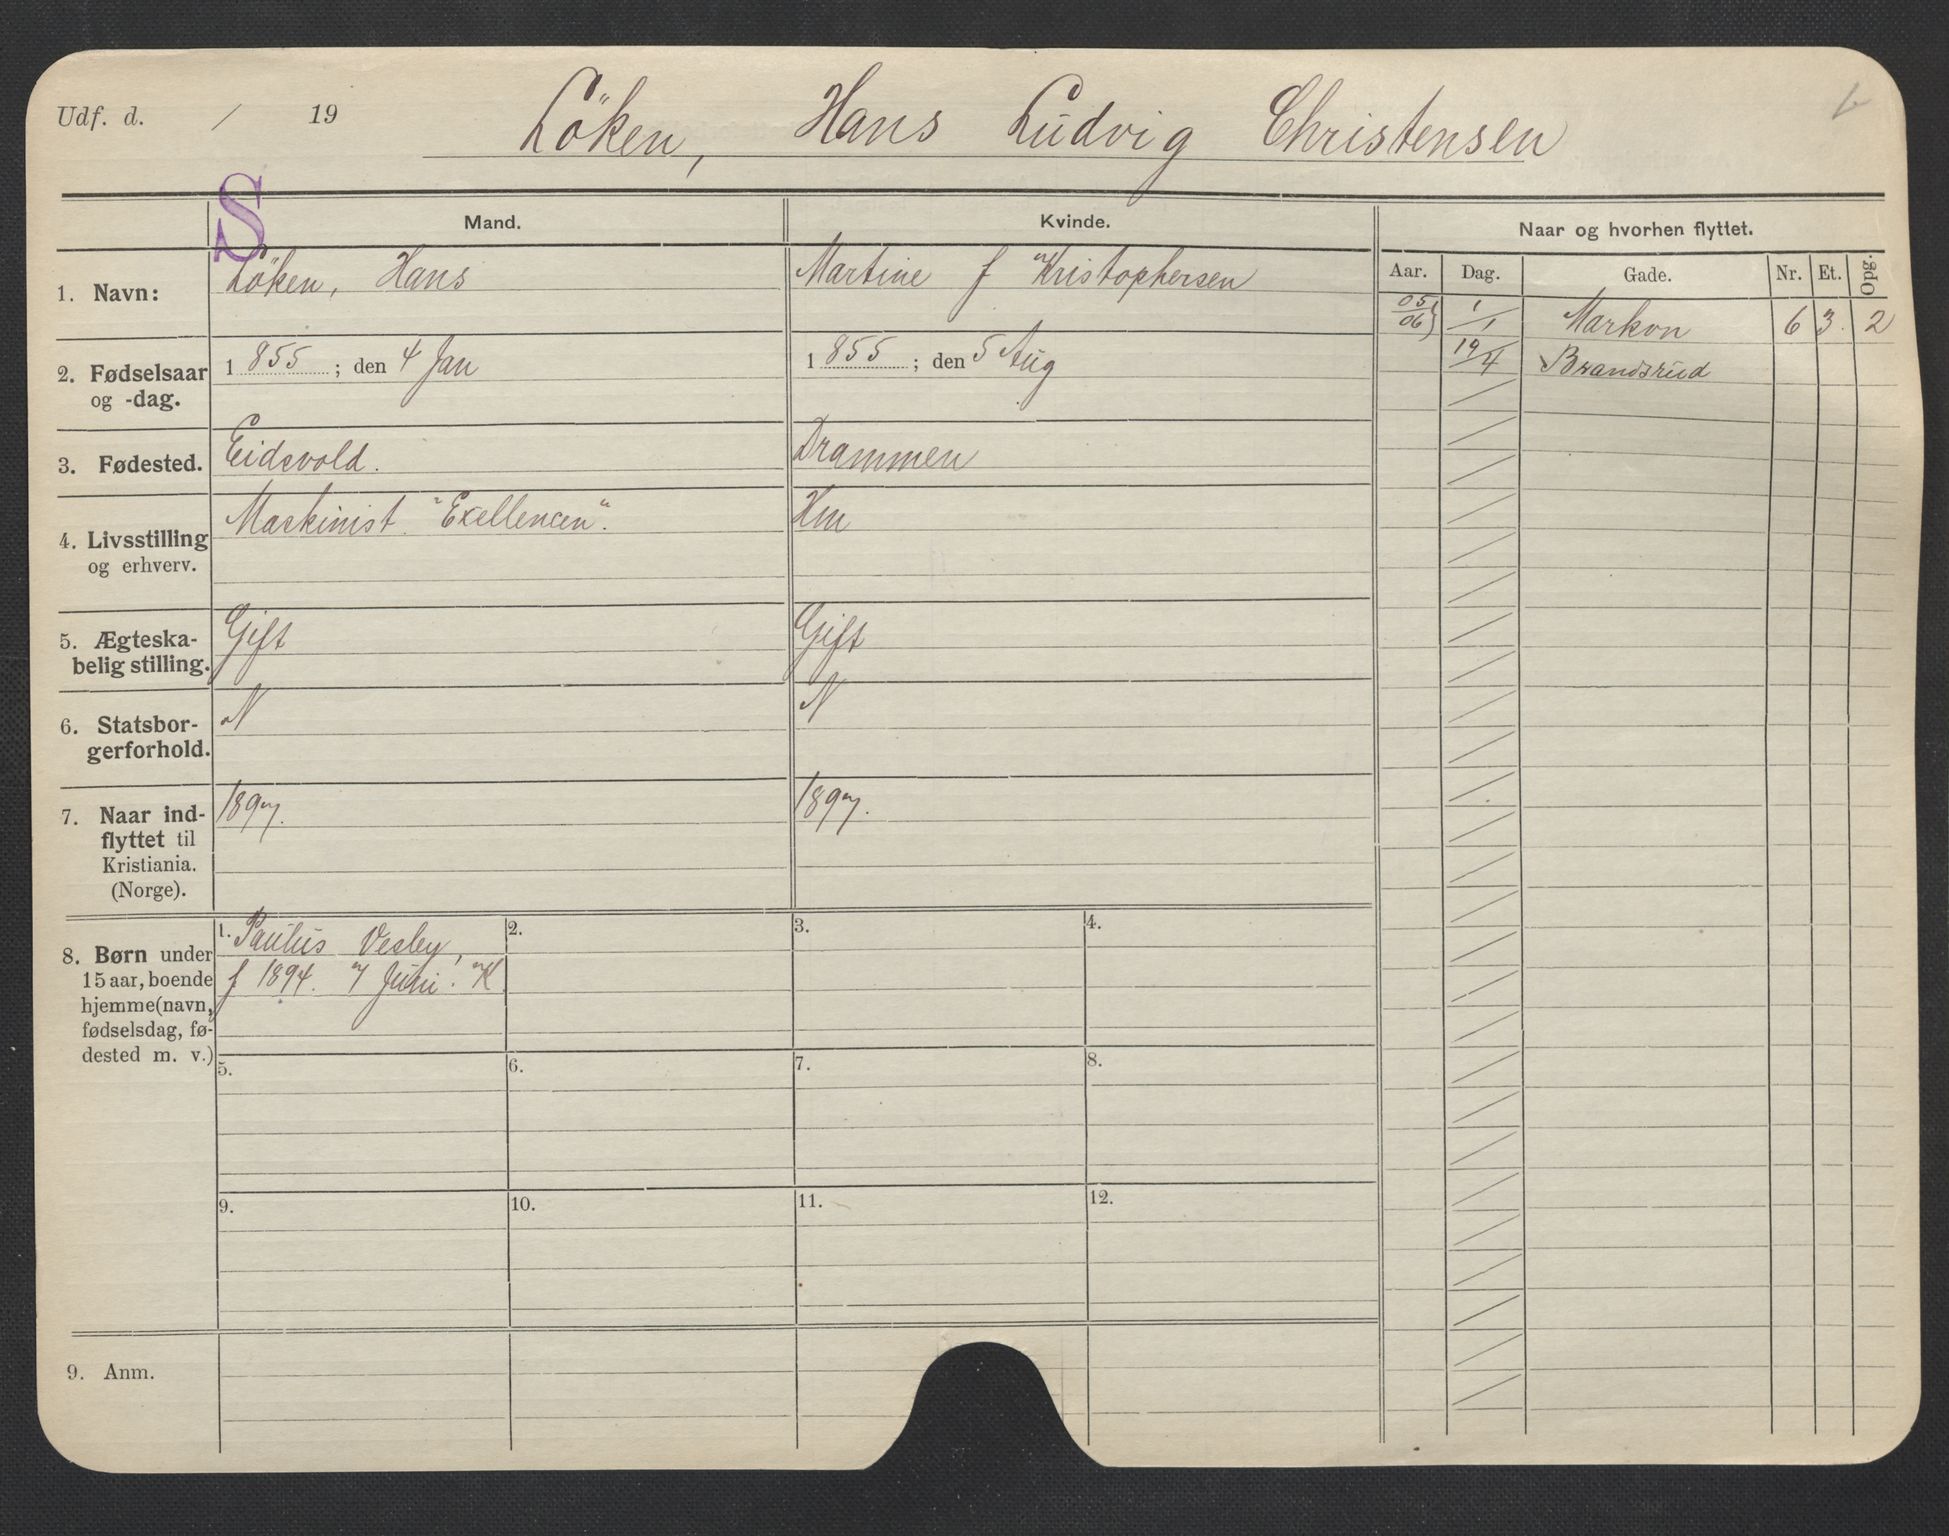 Udf. d. / 19 Löken, Hans Ludvig Christensen
S
Mand. Kvinde. Naar og hvorhen flyttet.
Aar. Dag. Gade. Nr. Et. Opg.
1. Navn: Löken, Hans Martine f Kristophersen
05/06 1/1 Markvn 6 3. 2
19/4 Brandsrud
2. Fødselsaar og -dag. 1855; den 4 Jan 1855; den 5 Aug
3. Fødested. Eidsvold. Drammen
4. Livsstilling og erhverv. Maskinist. "Exellencen". Hm
5. Ægteska-
belig stilling. Gift Gift
6. Statsbor-
gerforhold. N N
7. Naar ind-
flyttet til
Kristiania.
(Norge). 1897. 1897.
8. Børn under
15 aar, boende
hjemme (navn,
fødselsdag, fø-
dested m. v.)
1. Paulus Vesley,
f 1894. 7 Juni. K.
2.
3.
4.
5.
6.
7.
8.
9.
10.
11.
12.
9. Anm.